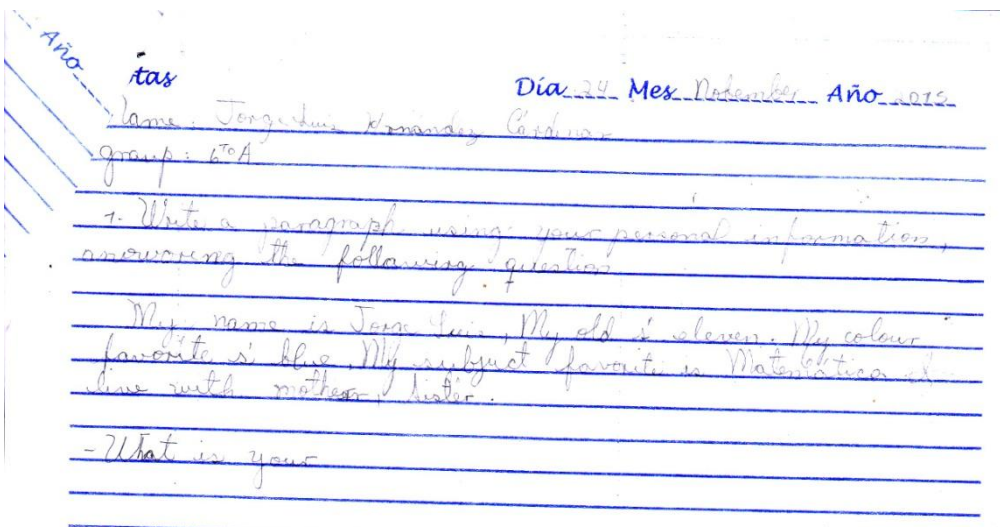 Año
tas
Día 24 Mes November Año 2015
Name: Jorge Luis Hernandez Cárdenas
group: 6to A
1- Write a paragraph using your personal information,
answering the following question
My name is Jorge Luis, My old s' eleven. My colour
favorite s' blue, My subject favorite is Matemática I
live with mother, sister.
- What is your